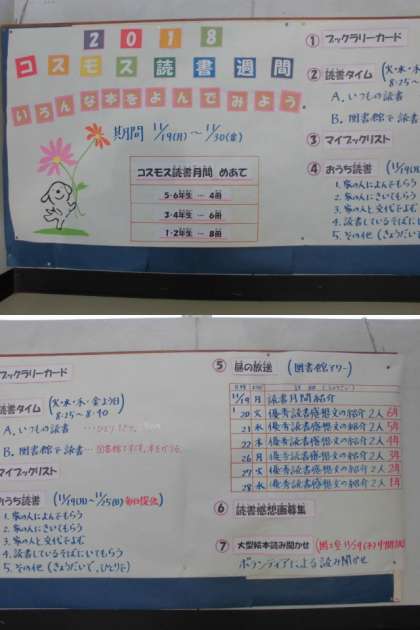 2018
コスモス読書週間
いろんな本をよんでみよう
期間 11/19(月)～11/30(金)
コスモス読書月間 めあて
5・6年生 … 4冊
3・4年生 … 6冊
1・2年生 … 8冊
① ブックラリーカード
② 読書タイム (火・水・木
8:25～
A. いつもの読書
B. 図書館で読書
③ マイブックリスト
④ おうち読書 (11/19(月)
1. 家の人によんでもらう
2. 家の人にきいてもらう
3. 家の人と交代でよむ
4. 読書しているそばに
5. その他 (きょうだい
ブックラリーカード
読書タイム (火・水・木・金よう日)
8:25～8:40
A. いつもの読書
B. 図書館で読書
マイブックリスト
おうち読書
1. 家の人によんでもらう
2. 家の人にきいてもらう
3. 家の人と交代でよむ
4. 読書しているそばにいてもらう
5. その他 (きょうだいで、ひとりで)
⑤ 昼の放送
11/19 月 読書月間紹介
20 火 優秀読書感想文の紹介2人 6年
21 水 優秀読書感想文の紹介2人 5年
22 木 優秀読書感想文の紹介2人 4年
26 月 優秀読書感想文の紹介2人 3年
27 火 優秀読書感想文の紹介2人 2年
28 水 優秀読書感想文の紹介2人 1年
⑥ 読書感想画募集
⑦ 大型絵本読み聞かせ
ボランティアによる読み聞かせ